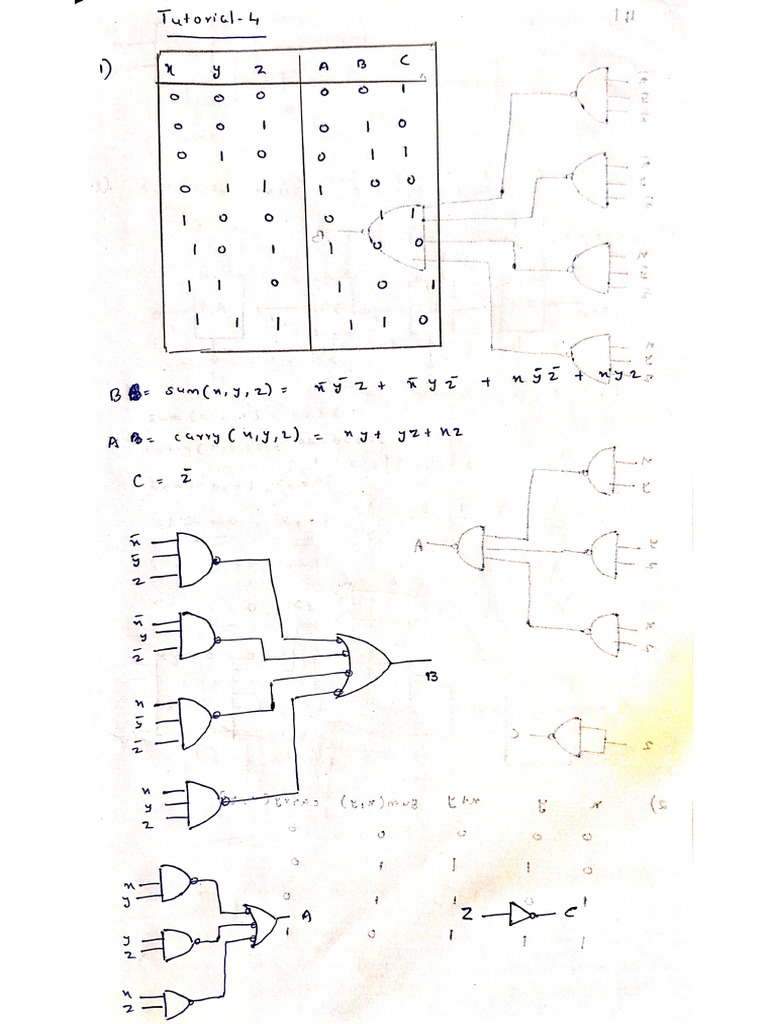 Tutorial-4
1)
x y z A B C
0 0 0 0 0 1
0 0 1 0 1 0
0 1 0 0 1 1
0 1 1 1 0 0
1 0 0 0 1 1
1 0 1 1 0 0
1 1 0 1 0 1
1 1 1 1 1 0
B = sum(x,y,z) = x̄ ȳ z + x̄ y z̄ + x ȳ z̄ + x y z
A = carry(x,y,z) = xy + yz + xz
C = z̄
x̄
ȳ
z
x̄
y
z̄
x
ȳ
z̄
B
x
y
z
x
y
A
y
z
1
x
z
Z C